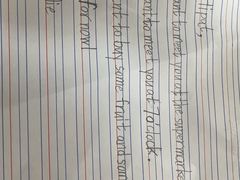 ant to meet you at the supermarke
ant to meet you at 7 o'clock.
nt to buy some fruit and som
for now!
lie